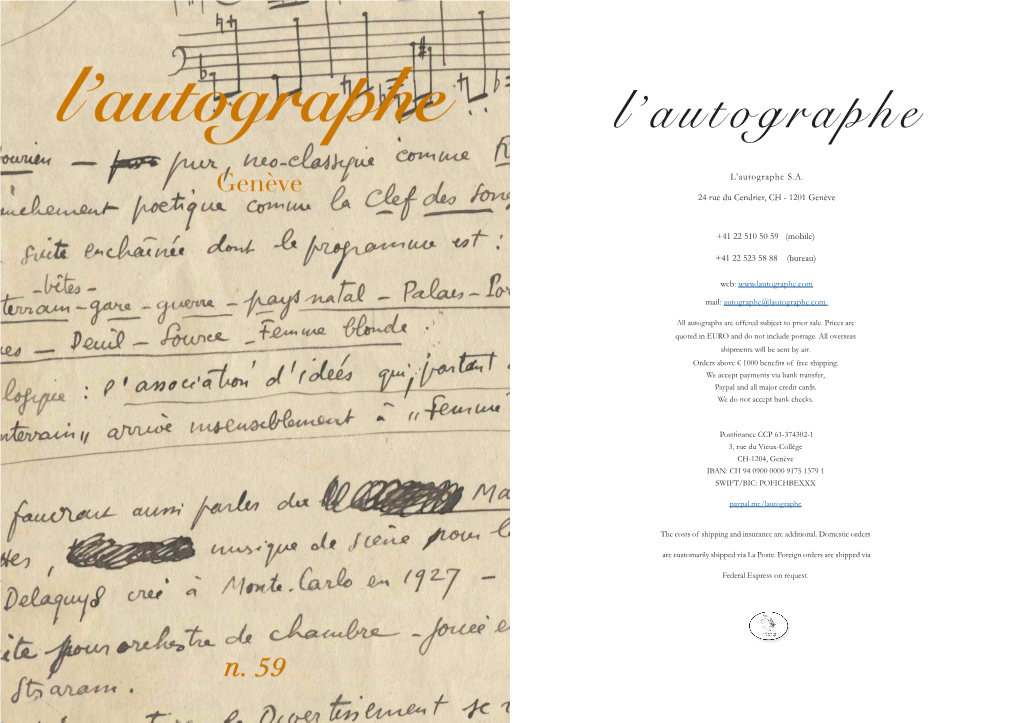 l'autographe
Genève
— pur, neo-classique comme
poetique comme la Clef des
suite enchaînée dont le programme est :
-bêtes-
terrain - gare - guerre - pays natal - Palaes -
— Deuil — Source — Femme blonde.
logique : l'association d'idées qui, partant
arrive insensiblement à "Femme
faudrait aussi parler du
musique de scène pour
Delaquys créé à Monte-Carlo en 1927 —
pour orchestre de chambre — Jouée
Straram.
le Divertissement se
n. 59
l'autographe
L'autographe S.A.
24 rue du Cendrier, CH - 1201 Genève
+41 22 510 50 59 (mobile)
+41 22 523 58 88 (bureau)
web: www.lautographe.com
mail: autographe@lautographe.com
All autographs are offered subject to prior sale. Prices are
quoted in EURO and do not include postage. All overseas
shipments will be sent by air.
Orders above € 1000 benefits of free shipping.
We accept payments via bank transfer,
Paypal and all major credit cards.
We do not accept bank checks.
Postfinance CCP 61-374302-1
3, rue du Vieux-Collège
CH-1204, Genève
IBAN: CH 94 0900 0000 9175 1379 1
SWIFT/BIC: POFICHBEXXX
paypal.me/lautographe
The costs of shipping and insurance are additional. Domestic orders
are customarily shipped via La Poste. Foreign orders are shipped via
Federal Express on request.